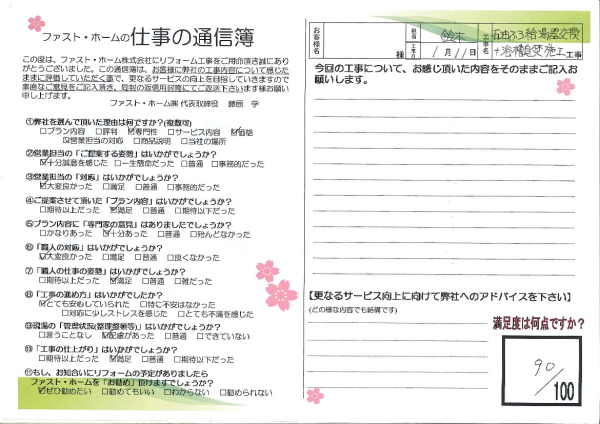 ファスト・ホームの仕事の通信簿
この度は、ファスト・ホーム株式会社にリフォーム工事をご用命頂き誠にあり
がとうございました。この通信簿は、お客様に弊社の工事内容について感じた
ままに評価していただく事で、更なるサービスの向上を目指していきますので
率直なご意見をご記入頂き、同封の返信用封筒にてご返送下さいます様お願い
申し上げます。
ファスト・ホーム㈱ 代表取締役 藤原 学
①弊社を選んで頂いた理由は何ですか?(複数可)
□プラン内容 □評判 ☑専門性 □サービス内容 ☑価格
☑営業担当の対応 □商品説明 □当社の場所
②営業担当の「ご提案する姿勢」はいかがでしょうか?
☑十分誠意を感じた □一生懸命だった □普通 □事務的だった
③営業担当の「対応」はいかがでしょうか?
☑大変良かった □満足 □普通 □事務的だった
④ご提案させて頂いた「プラン内容」はいかがでしょうか?
□期待以上だった ☑満足 □普通 □期待以下だった
⑤プラン内容に「専門家の意見」はありましたでしょうか?
□かなりあった ☑十分あった □普通 □殆んどなかった
⑥「職人の対応」はいかがでしょうか?
☑大変良かった □満足 □普通 □良くなかった
⑦「職人の仕事の姿勢」はいかがでしょうか?
□期待以上だった ☑満足 □普通 □雑だった
⑧「工事の進め方」はいかがでしたか?
☑とても安心していられた □特に不安はなかった
□対応に少しストレスを感じた □とても不満を感じた
⑨現場の「管理状況(整理整頓等)」はいかがでしょうか?
□言うことなし ☑配慮があった □普通 □できていない
⑩「工事の仕上がり」はいかがでしょうか?
□期待以上だった ☑満足 □普通 □期待以下だった
⑪もし、お知合いにリフォームの予定がありましたら
ファスト・ホームを「お勧め」頂けますでしょうか?
☑ぜひ勧めたい □勧めてもいい □わからない □勧められない
お客様名 様
担当 鈴木
工事日 1/11日
工事名 給湯器交換
+浴槽追焚施工工事
今回の工事について、お感じ頂いた内容をそのままご記入お
願いします。
【更なるサービス向上に向けて弊社へのアドバイスを下さい】
(どの様な内容でも結構です)
満足度は何点ですか?
90/100